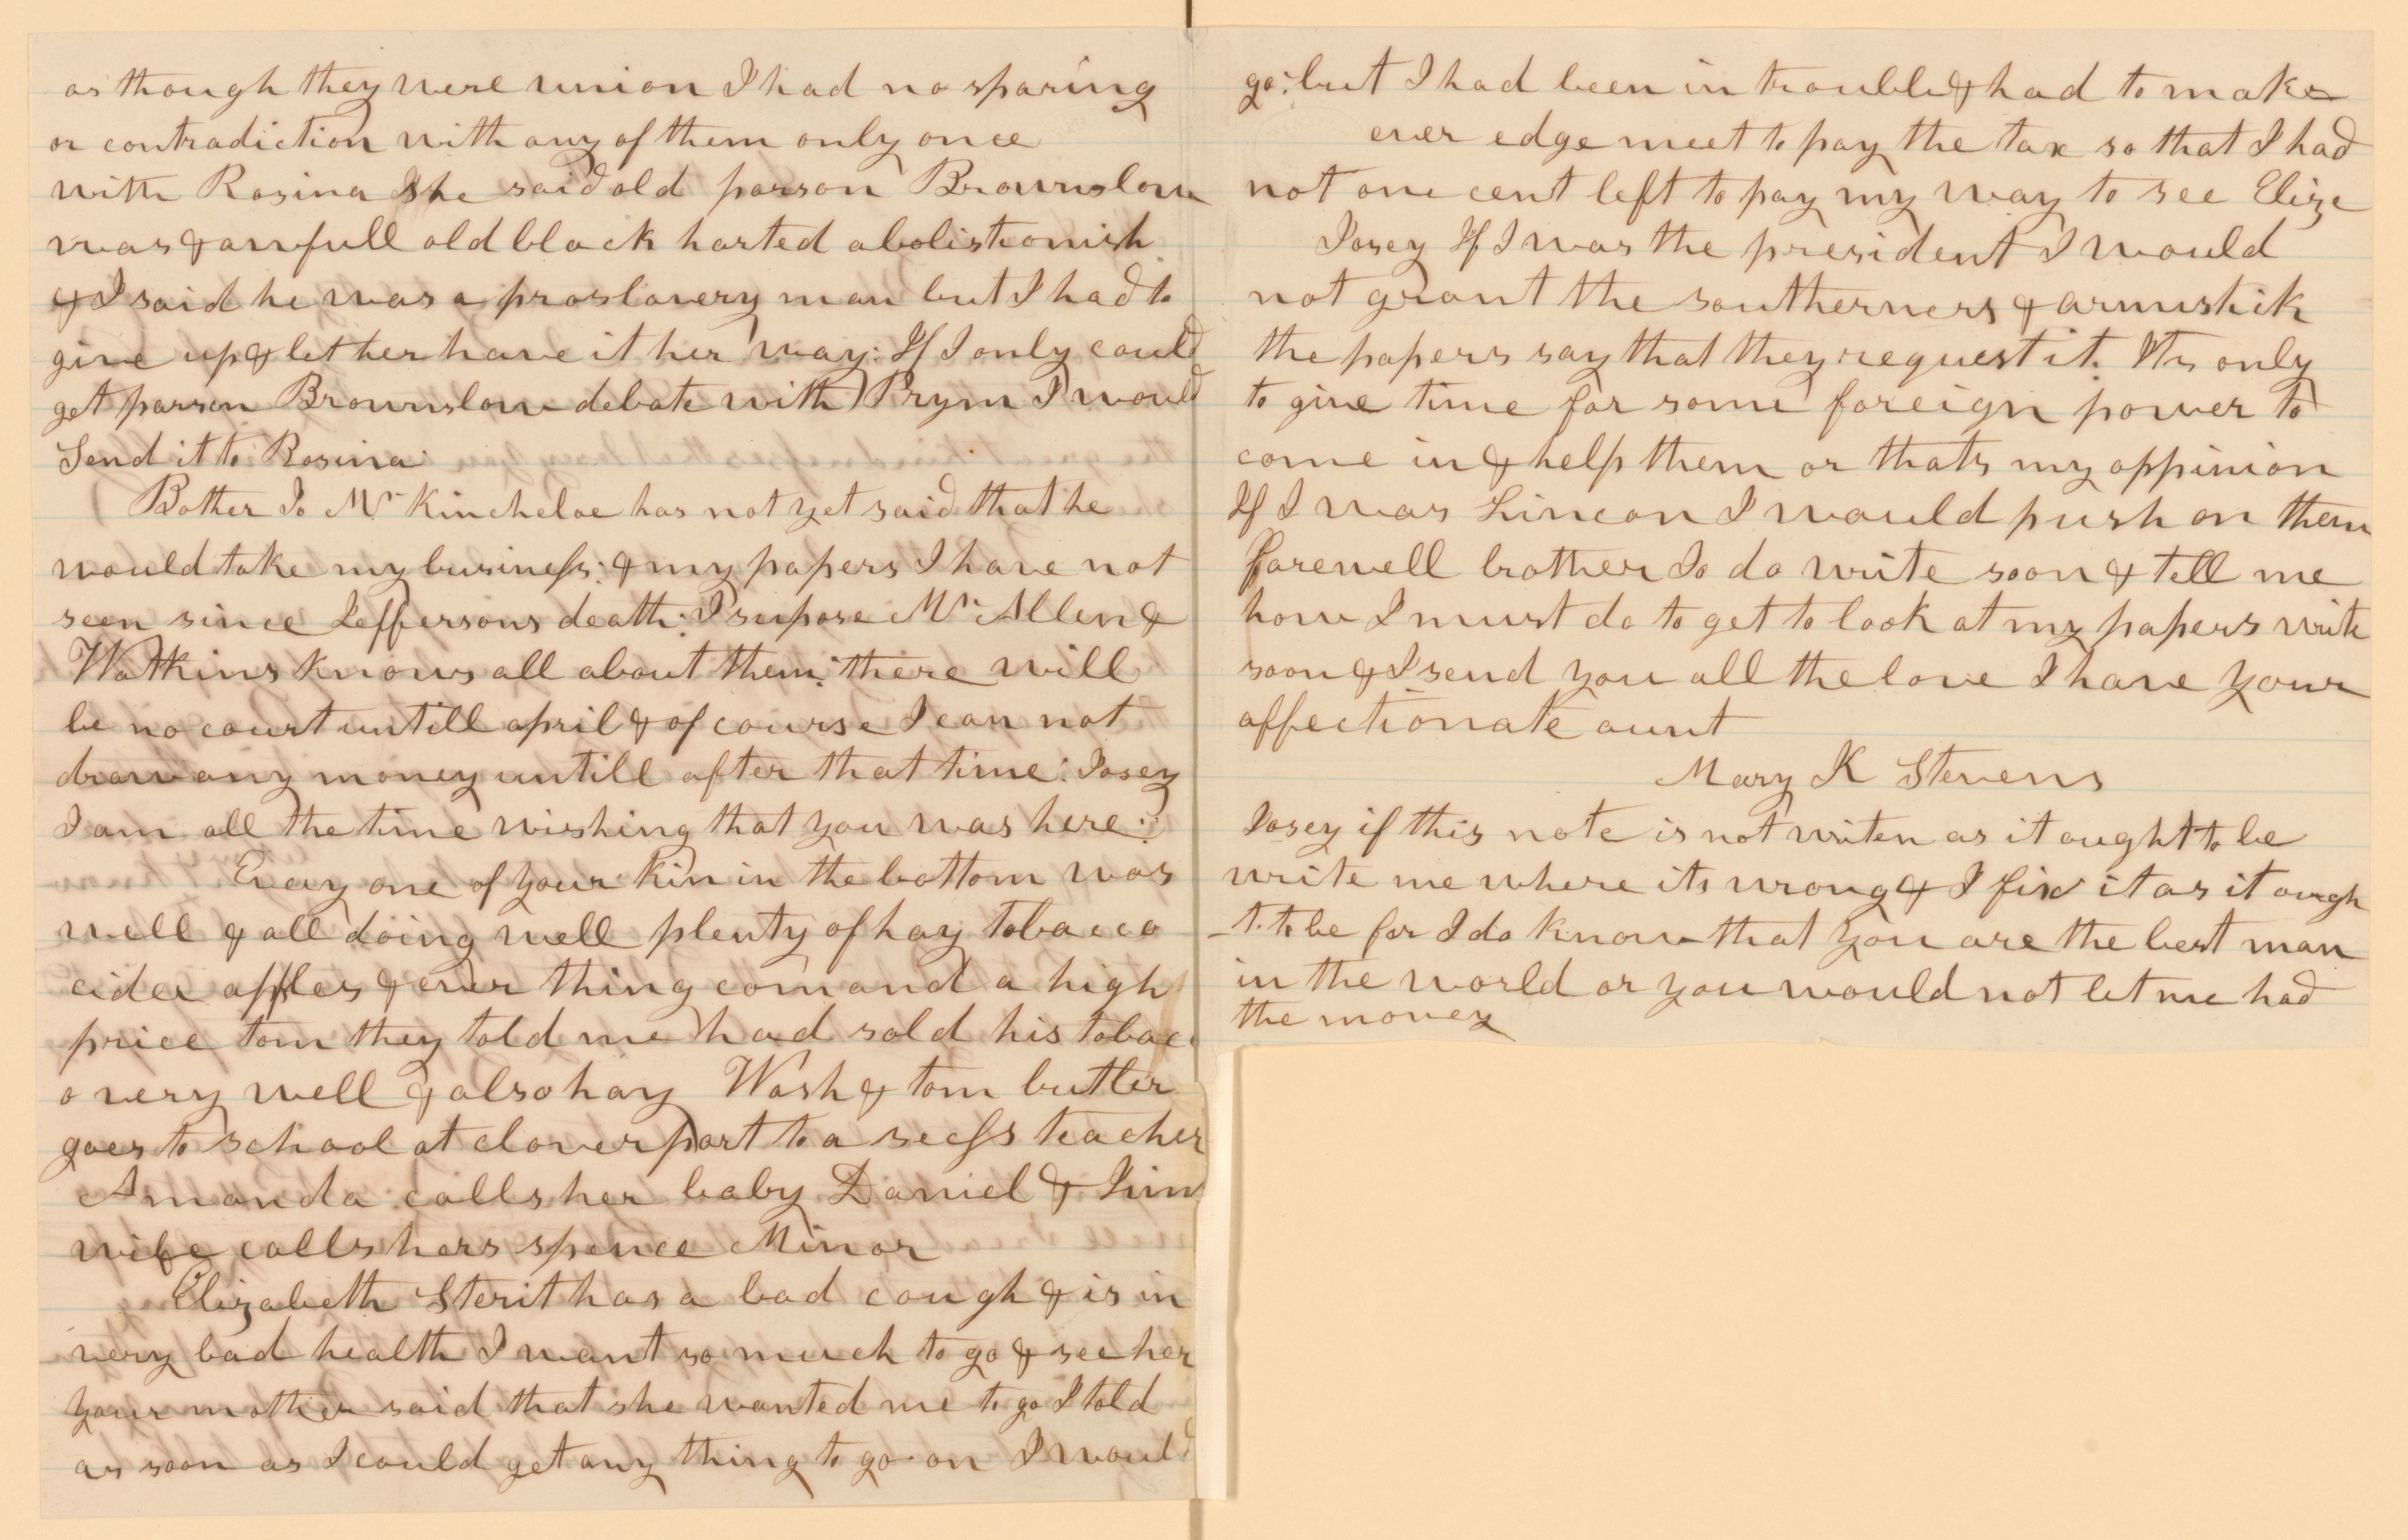 as though they were union I had no sparing
or contradiction with any of them only once
with Rosina She said old parson Brownslow
was & awfull old black harted abolistionish
& I said he was a proslavery man but I had to
give up & let her have it her way: If I only could
get parson Brownslow debate with Prym I would
Send it to Rosina
Bother Jo Mr Kincheloe has not yet said that he
would take my business: & my papers I have not
seen since Jeffersons death: I supose Mr Allen &
Watkins knows all about them: there will
be no court untill april & of course I can not
draw any money untill after that time: Josey
I am all the time wishing that you was here:
Evey one of your kin in the bottom was
well & all doing well plenty of hay tobacco
cider apples & ever thing comand a high
price tom they told me had sold his tobac
o very well & also hay Wash & tom butler
goes to school at cloverport to a secess teacher
Amanda calls her baby Daniel & Jim
wife calls hers spence Minor
Elizabeth Sterit has a bad cough & is in
very bad health I want so much to go & see her
your mother said that she wanted me to go I told
as soon as I could get any thing to go on I would
go: but I had been in trouble & had to make
ever edge meet to pay the tax so that I had
not one cent left to pay my way to see Elize
Josey If I was the president I would
not grant the southerners & armistick
the papers say that they request it. Its only
to give time for some foreign power to
come in & help them or thats my oppinion
If I was Lincon I would push on them
farewell brother Jo do write soon & tell me
how I must do to get to look at my papers write
soon & I send you all the love I have your
affectionate aunt
Mary K Stevens
Josey if this note is not writen as it ought to be
write me where its wrong & I fix it as it ough
-t. to be for I do know that you are the best man
in the world or you would not let me had
the money